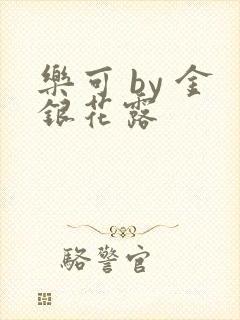 樂可 by 金
銀花露
駱警官